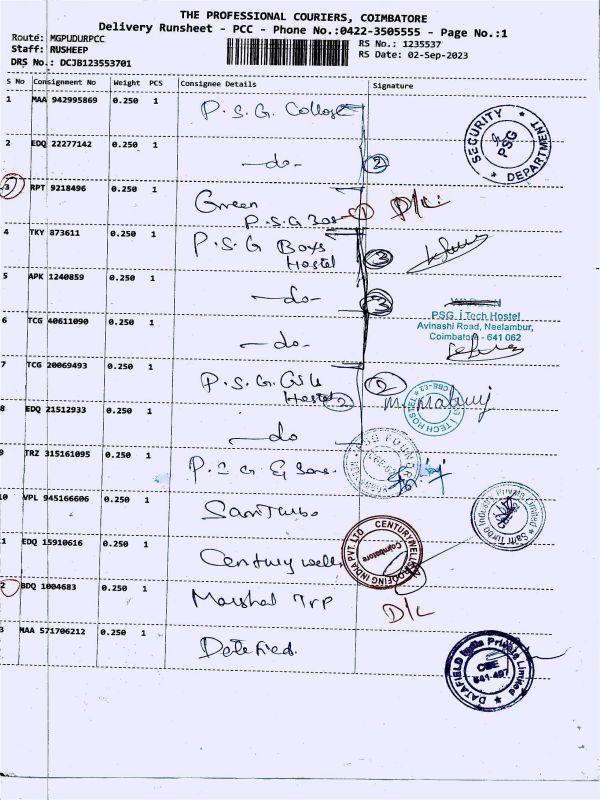 THE PROFESSIONAL COURIERS, COIMBATORE
Delivery Runsheet - PCC - Phone No.:0422-3505555 - Page No.:1
Route: MGPUDURPCC
Staff: RUSHEEP
DRS No.: DCJB123553701
RS No.: 1235537
RS Date: 02-Sep-2023
S No Consignment No Weight PCS Consignee Details Signature
1 MAA 942995869 0.250 1 P.S.G. College
SECURITY DEPARTMENT PSG
2 EDQ 22277142 0.250 1 -do- 2
3 RPT 9218496 0.250 1 Green
P.S.G 1 D/L
4 TKY 873611 0.250 1 P.S.G Boys
Hostel 3
5 APK 1240859 0.250 1 -do- 3
PSG iTech Hostel
Avinashi Road, Neelambur,
Coimbatore - 641 062
6 TCG 40611090 0.250 1 -do-
7 TCG 20069493 0.250 1 P.S.G. Girls
Hostel 2 2
I TECH HOSTEL
8 EDQ 21512933 0.250 1 -do
9 TRZ 315161095 0.250 1 P.S G & Sons.
10 VPL 945166606 0.250 1 Sam Turbo
Sam Turbo Industry Private Limited
1 EDQ 15910616 0.250 1 Century wells
CENTURYWELLS ROOFING INDIA PVT. LTD Coimbatore
2 BDQ 1004683 0.250 1 Marshal Trp D/L
3 MAA 571706212 0.250 1 Datefied.
DATAFIELD India Private Limited CBE 641-407